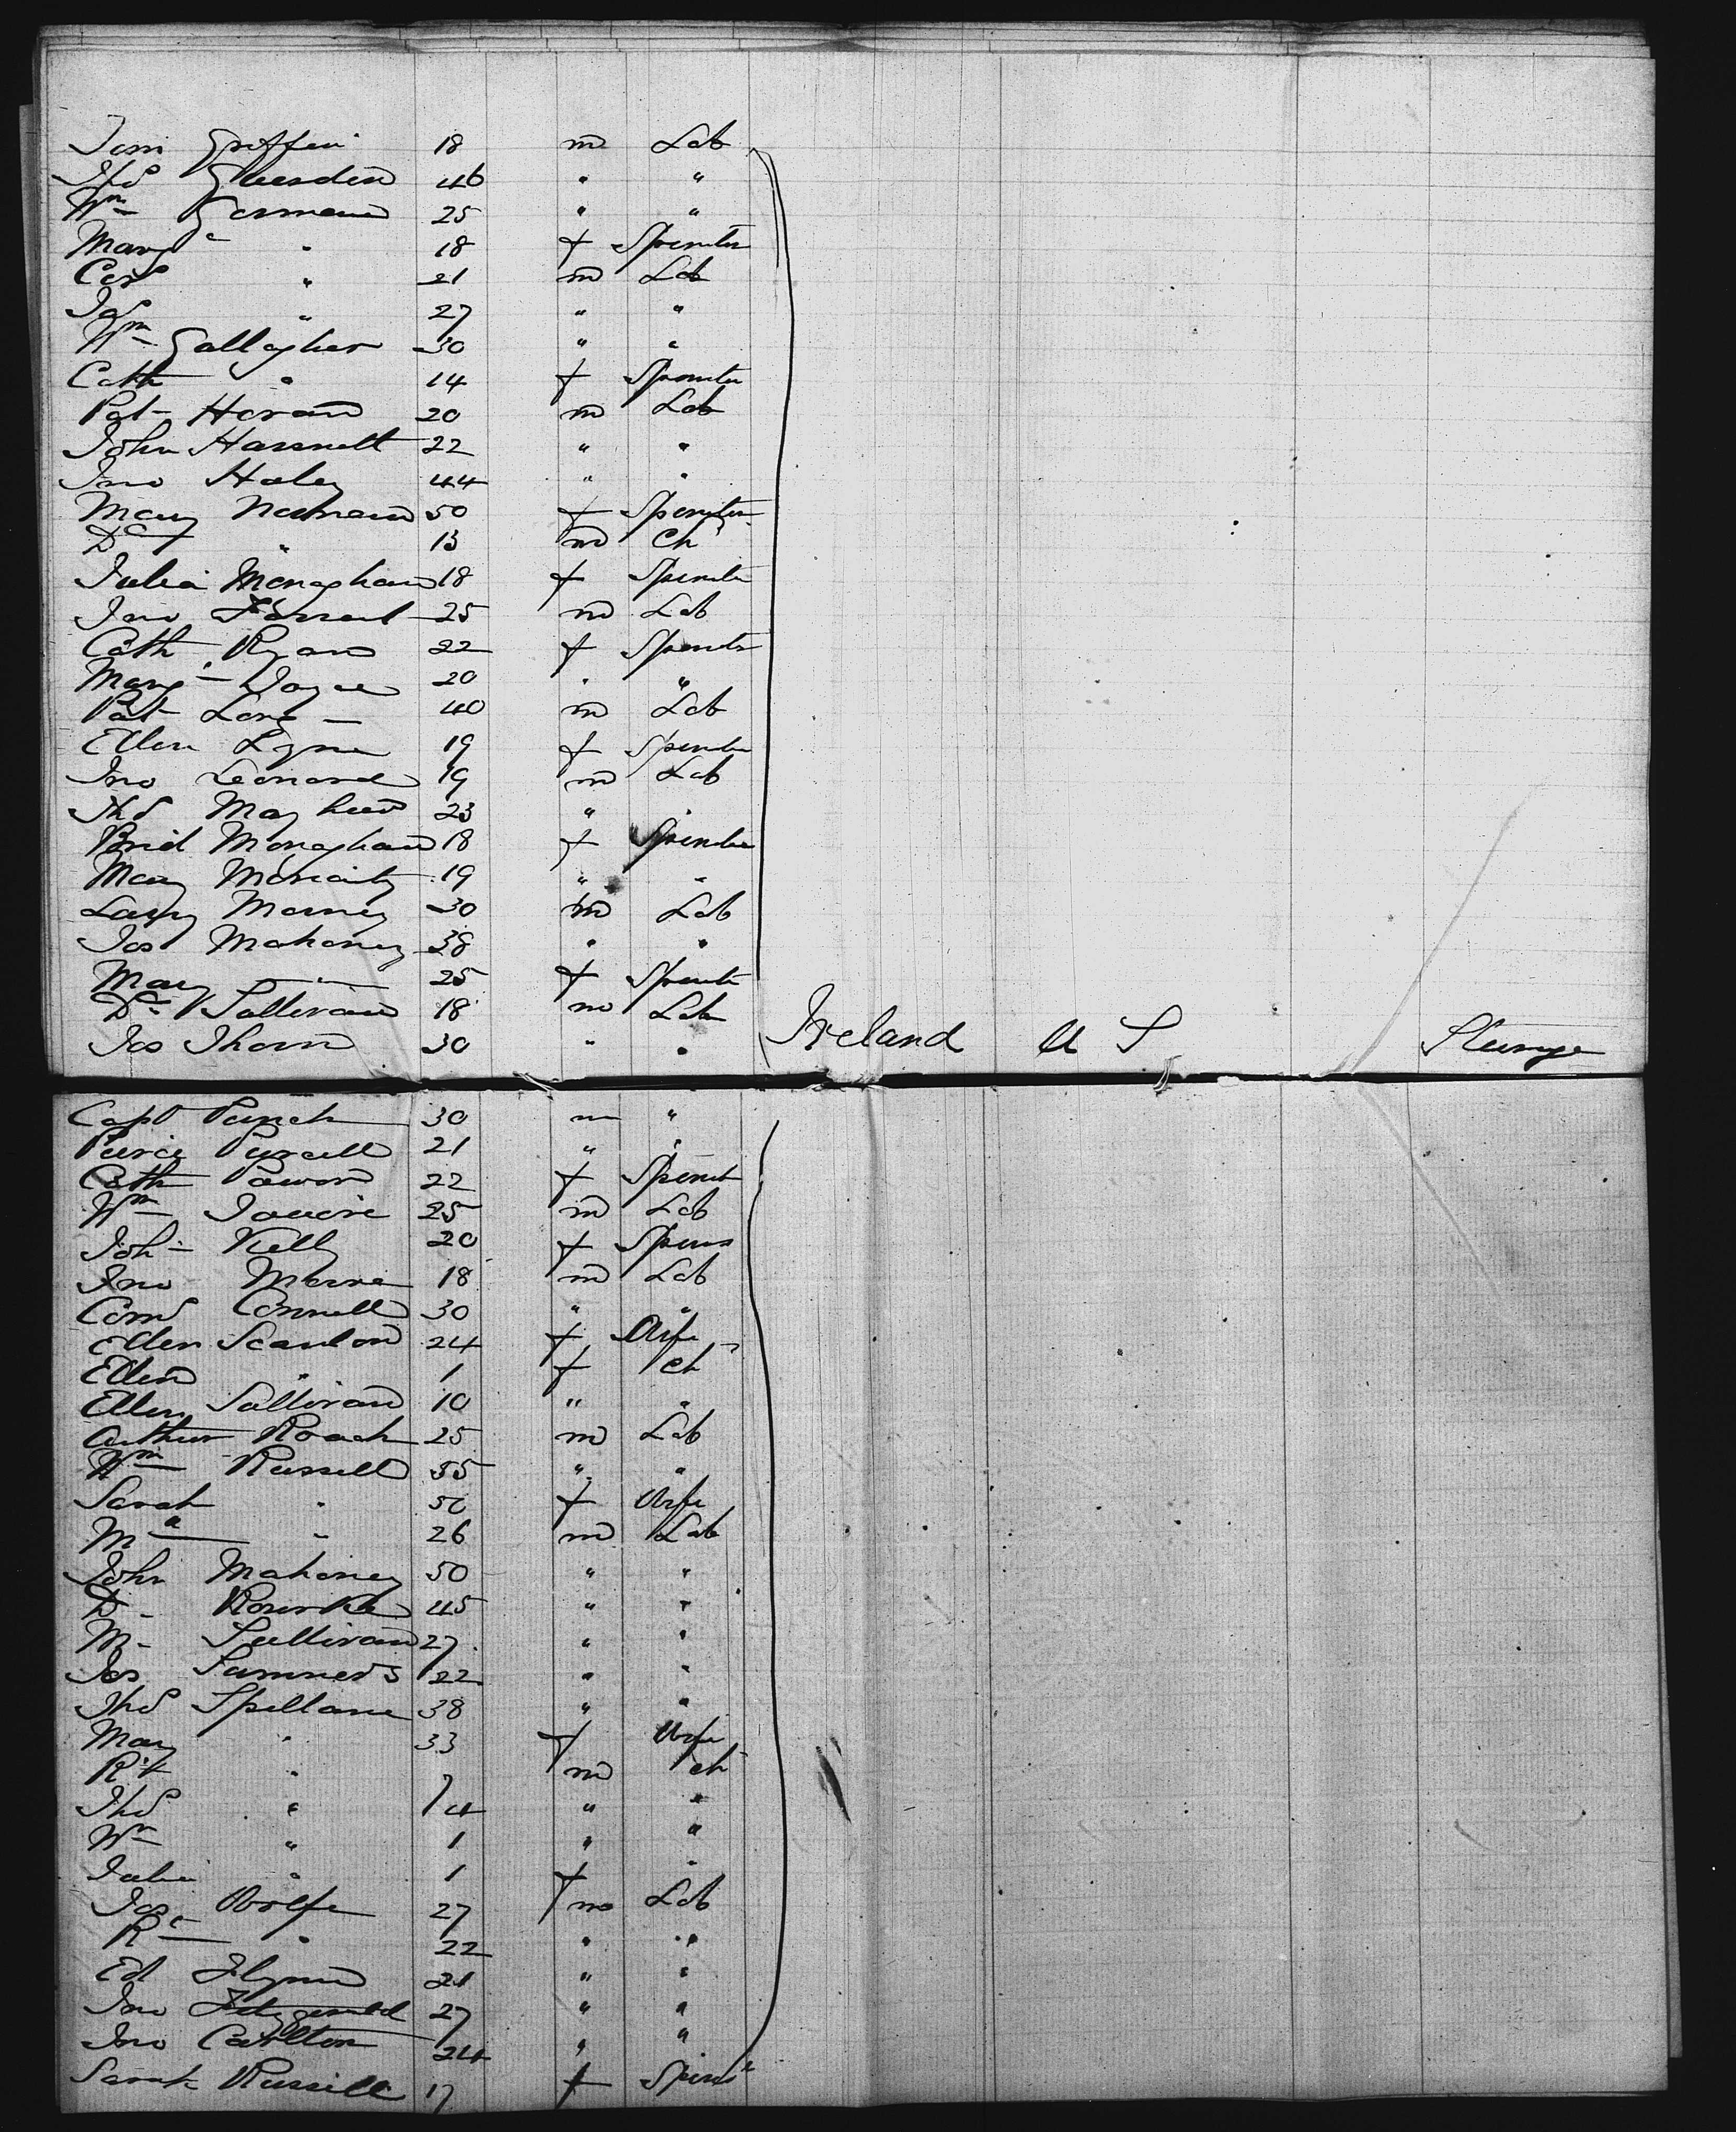 Tom Griffin 18 m Lab
Thos 46 " "
Wm Gorman 25 " "
Margt " 18 f Spinster
" 21 m Lab
Jas " 27 " "
Wm Gallagher 30 " "
Cath " 14 f Spinster
Pat Horan 20 m Lab
John Hassnett 22 " "
Jno Haley 44 " "
Mary 50 f Spinster
" 13 m Ch
Julia Monaghan 18 f Spinster
Jno 25 m Lab
Cath Ryan 22 f Spinster
Margt 20 " "
Pat Long 40 m Lab
Ellen Lyne 19 f Spinster
Jno Leonard 19 m Lab
Thos May 23 " "
Brid Monaghan 18 f Spinster
Mary Moriarty 19 " "
Larry 30 m Lab
Jas Mahoney 38 " "
Mary " 25 f Spinster
Dl Sullivan 18 m Lab
Jas Thorn 30 " " Ireland U S Steerage
Capt Punch 30 m "
Pierce Purcell 21 " "
Cath Power 22 f Spinst
Wm 25 m Lab
Joh Kelly 20 f Spins
Jno 18 m Lab
Corns Connell 30 " "
Ellen Scanlon 24 f Wife
Ellen " 1 f Ch
Ellen Sullivan 10 " "
Arthur Roach 25 m Lab
Wm Russell 55 " "
Sarah " 50 f Wife
M " 26 m Lab
John Mahoney 50 " "
D Rourke 45 " "
M Sullivan 27 " "
Jas Summers 22 " "
Thos Spellane 38 " "
Mary " 33 f Wife
" 7 m ch
Thos " 4 " "
Wm " 1 " "
Julia " 1 f "
Jas Wolfe 27 m Lab
" 22 " "
Ed Flynn 21 " "
Jno Fitzgerald 27 " "
Jno Carlton 24 " "
Sarah Russell 17 f Spins